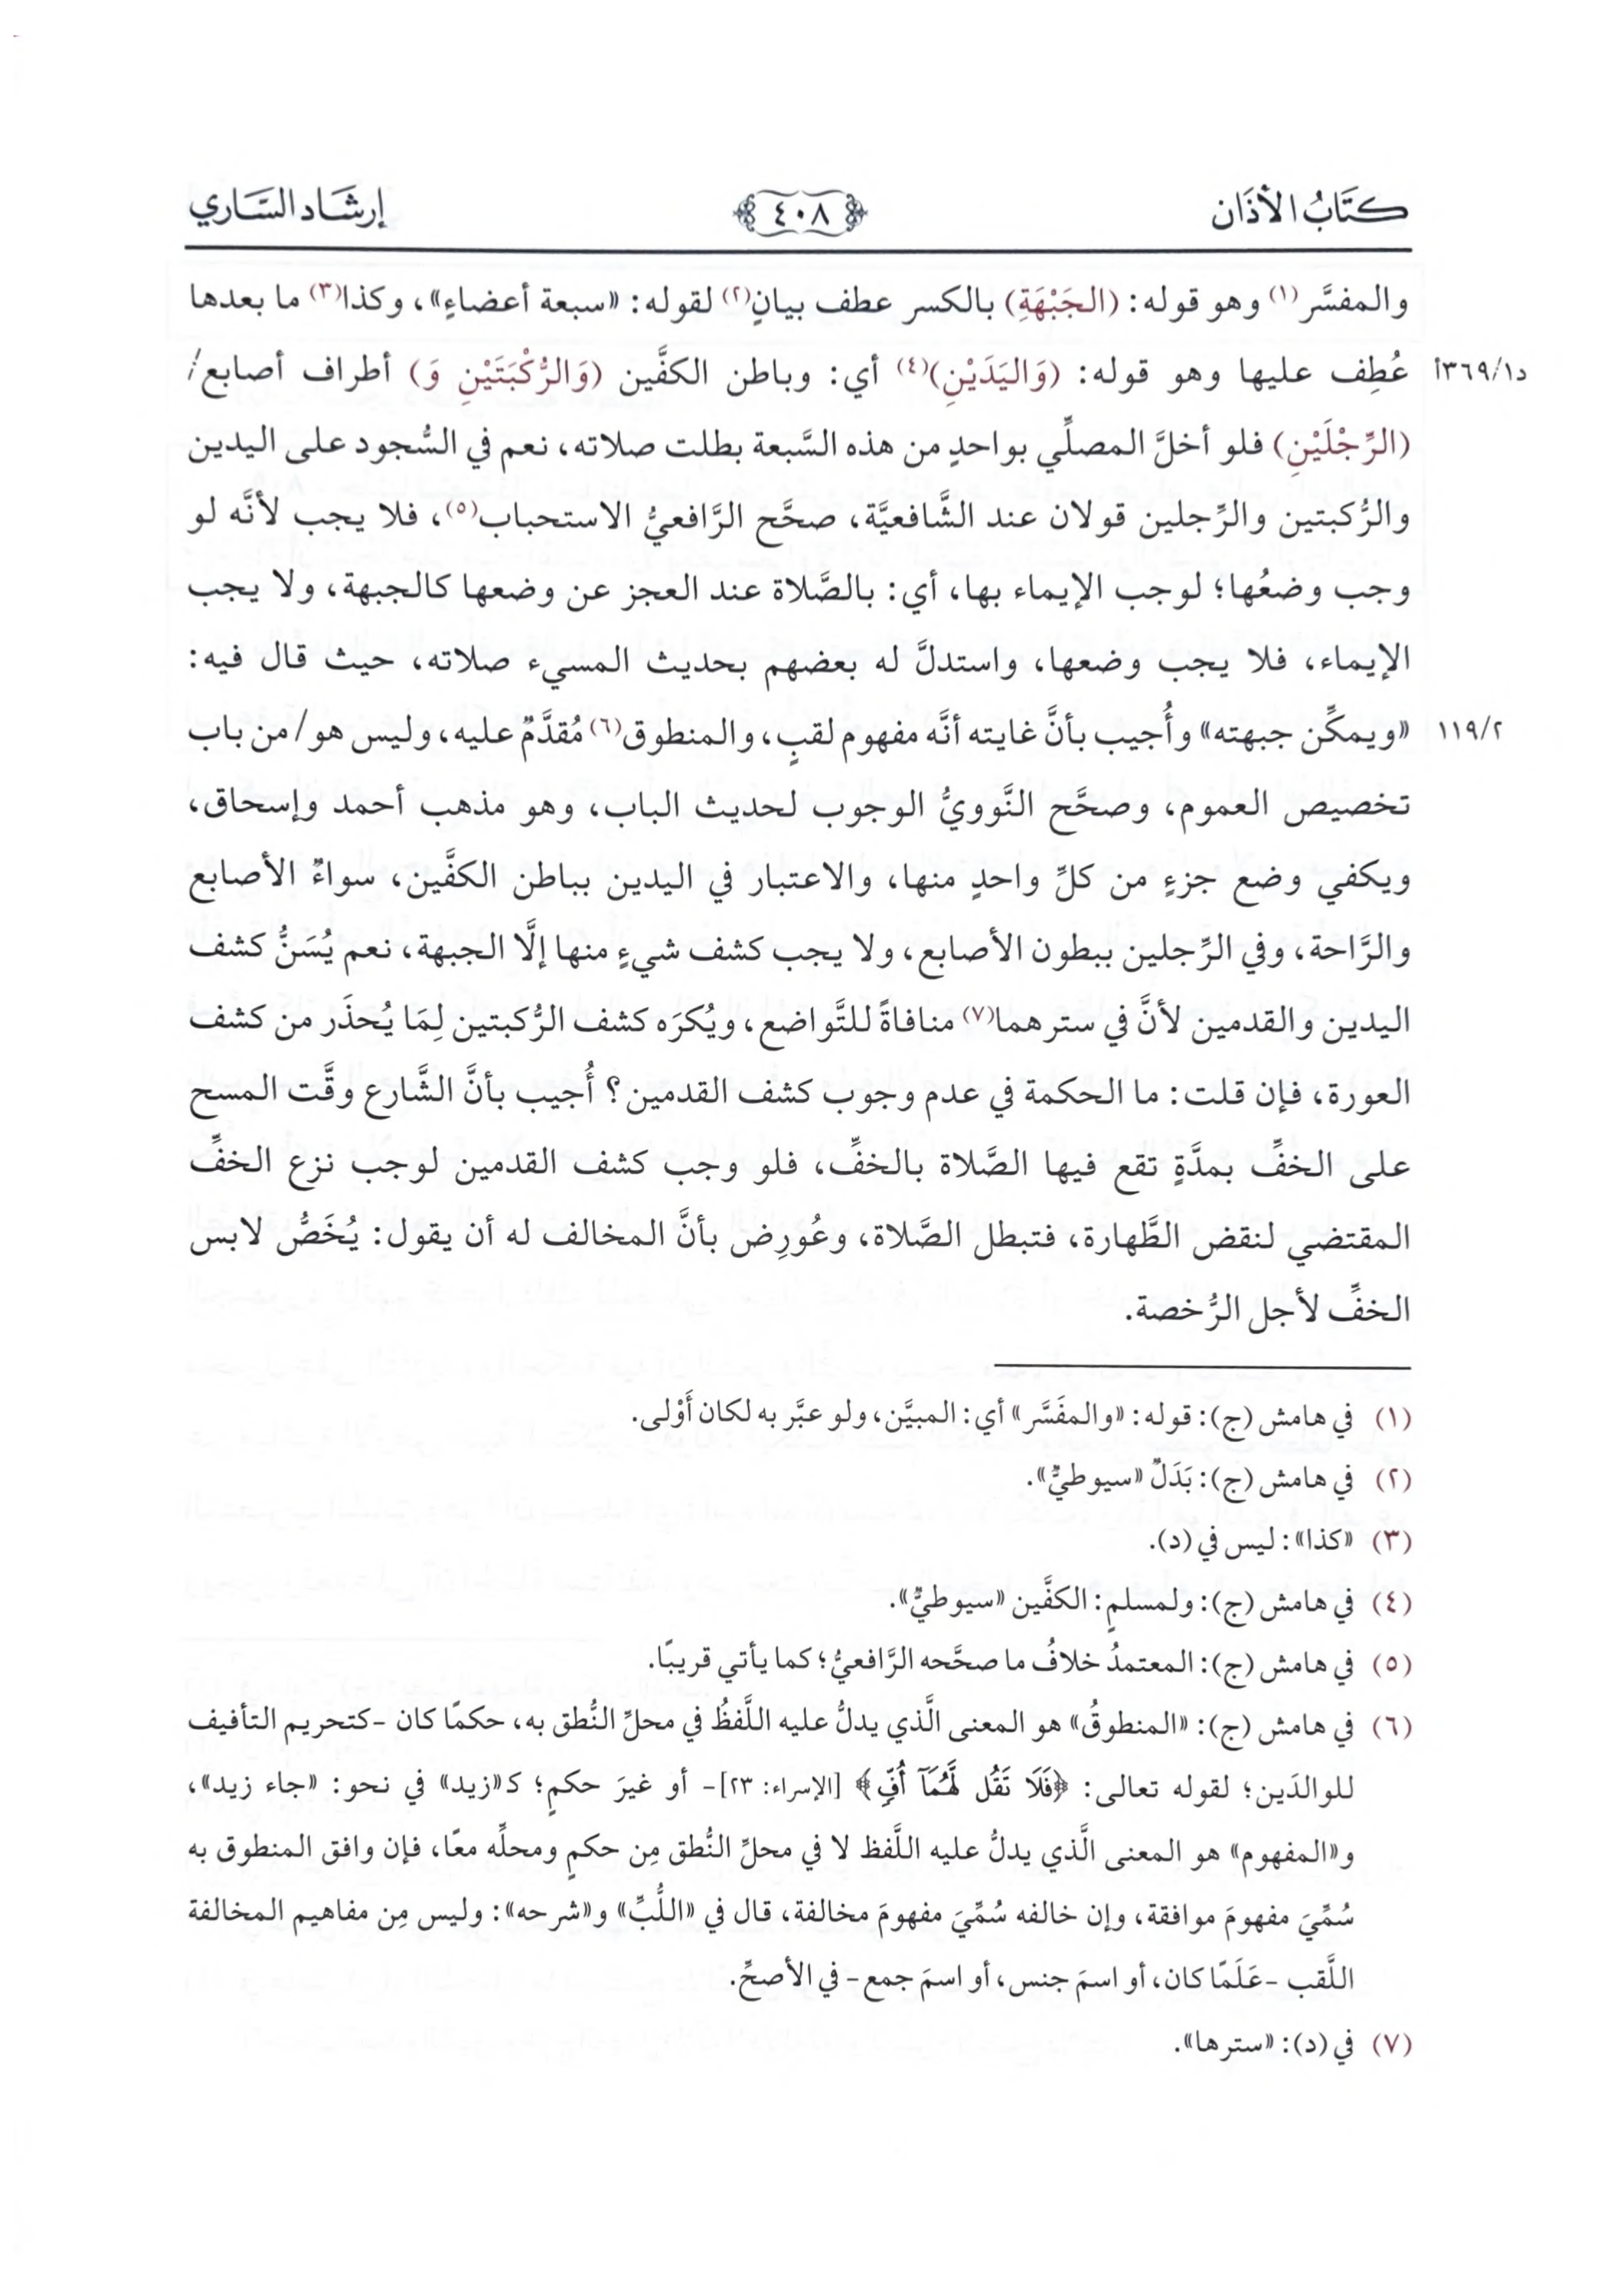 كتاب الأذان
٤٠٨
إرشاد الساري
والمفسَّر(١) وهو قوله: (الجَبْهَةِ) بالكسر عطف بيانٍ(٢) لقوله: «سبعة أعضاءٍ»، وكذا(٣) ما بعدها
د١/٣٦٩أ
عُطِف عليها وهو قوله: (وَاليَدَيْنِ)(٤) أي: وباطن الكفَّين (وَالرُّكْبَتَيْنِ وَ) أطراف أصابع/
(الرِّجْلَيْنِ) فلو أخلَّ المصلِّي بواحدٍ من هذه السَّبعة بطلت صلاته، نعم في السُّجود على اليدين
والرُّكبتين والرِّجلين قولان عند الشَّافعيَّة، صحَّح الرَّافعيُّ الاستحباب(٥)، فلا يجب لأنَّه لو
وجب وضعُها؛ لوجب الإيماء بها، أي: بالصَّلاة عند العجز عن وضعها كالجبهة، ولا يجب
الإيماء، فلا يجب وضعها، واستدلَّ له بعضهم بحديث المسيء صلاته، حيث قال فيه:
٢/١١٩
«ويمكِّن جبهته» وأُجيب بأنَّ غايته أنَّه مفهوم لقبٍ، والمنطوق(٦) مُقدَّمٌ عليه، وليس هو/ من باب
تخصيص العموم، وصحَّح النَّوويُّ الوجوب لحديث الباب، وهو مذهب أحمد وإسحاق،
ويكفي وضع جزءٍ من كلِّ واحدٍ منها، والاعتبار في اليدين بباطن الكفَّين، سواءٌ الأصابع
والرَّاحة، وفي الرِّجلين ببطون الأصابع، ولا يجب كشف شيءٍ منها إلَّا الجبهة، نعم يُسَنُّ كشف
اليدين والقدمين لأنَّ في سترهما(٧) منافاةً للتَّواضع، ويُكرَه كشف الرُّكبتين لِمَا يُحذَر من كشف
العورة، فإن قلت: ما الحكمة في عدم وجوب كشف القدمين؟ أُجيب بأنَّ الشَّارع وقَّت المسح
على الخفِّ بمدَّةٍ تقع فيها الصَّلاة بالخفِّ، فلو وجب كشف القدمين لوجب نزع الخفِّ
المقتضي لنقض الطَّهارة، فتبطل الصَّلاة، وعُورِض بأنَّ المخالف له أن يقول: يُخَصُّ لابس
الخفِّ لأجل الرُّخصة.
(١) في هامش (ج): قوله: «والمفَسَّر» أي: المبيَّن، ولو عبَّر به لكان أَوْلى.
(٢) في هامش (ج): بَدَلٌ «سيوطيٌّ».
(٣) «كذا»: ليس في (د).
(٤) في هامش (ج): ولمسلمٍ: الكفَّين «سيوطيٌّ».
(٥) في هامش (ج): المعتمدُ خلافُ ما صحَّحه الرَّافعيُّ؛ كما يأتي قريبًا.
(٦) في هامش (ج): «المنطوقُ» هو المعنى الَّذي يدلُّ عليه اللَّفظُ في محلِّ النُّطق به، حكمًا كان -كتحريم التأفيف
للوالدَين؛ لقوله تعالى: ﴿فَلَا تَقُل لَّهُمَآ أُفٍّ﴾ [الإسراء: ٢٣]- أو غيرَ حكمٍ؛ كـ«زيد» في نحو: «جاء زيد»،
و«المفهوم» هو المعنى الَّذي يدلُّ عليه اللَّفظ لا في محلِّ النُّطق مِن حكمٍ ومحلِّه معًا، فإن وافق المنطوق به
سُمِّيَ مفهومَ موافقة، وإن خالفه سُمِّيَ مفهومَ مخالفة، قال في «اللُّبِّ» و«شرحه»: وليس مِن مفاهيم المخالفة
اللَّقب -عَلَمًا كان، أو اسمَ جنس، أو اسمَ جمع- في الأصحِّ.
(٧) في (د): «سترها».